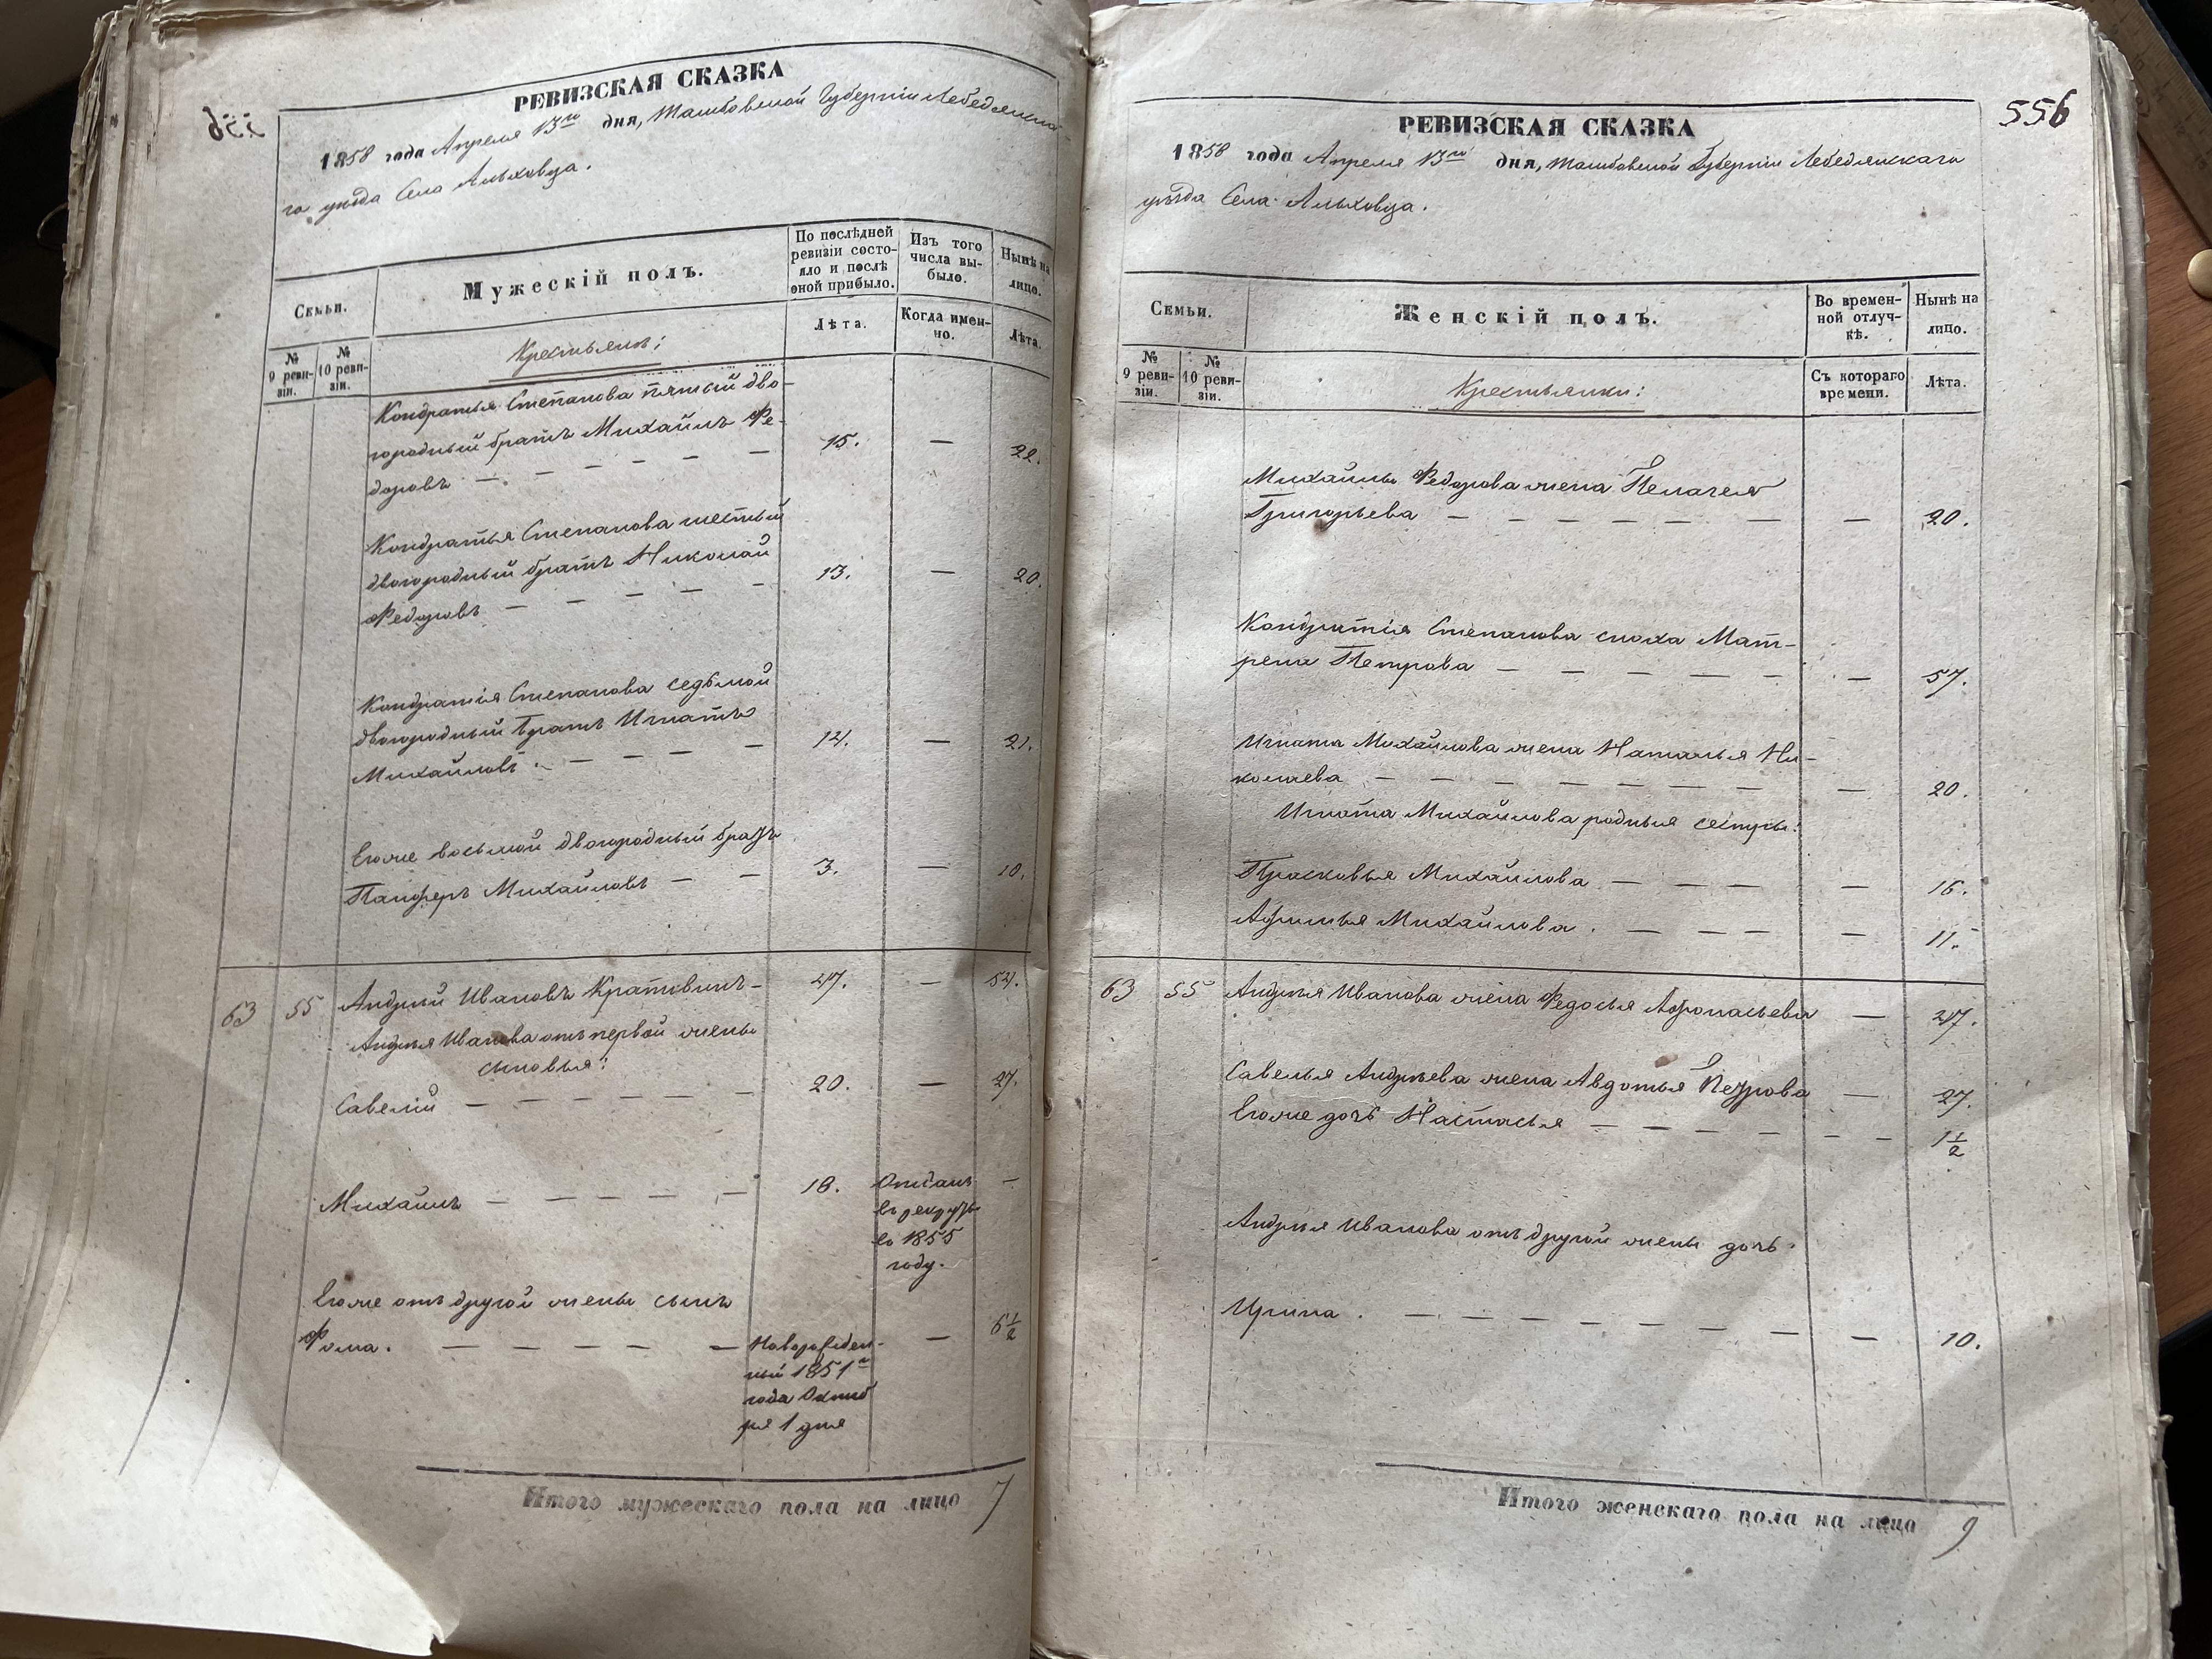 РЕВИЗСКАЯ СКАЗКА
1858 года Апреля 13го дня, Тамбовской Губерніи Лебедянска-
го уѣзда Села Альховца.
Семьи.
Мужескій полъ.
По послѣдней ревизіи состояло и послѣ оной прибыло.
Изъ того числа выбыло.
Нынѣ на лицо.
Лѣта.
Когда именно.
Лѣта.
№ 9 ревизіи.
№ 10 ревизіи.
Крестьяне:
Кондратья Степанова пятый дво-
городный братъ Михайлъ Фе-
доровъ — — — — — — 15. — 22.
Кондратья Степанова шестый
двогородный братъ Николай
Федоровъ — — — — — 13. — 20.
Кондратія Степанова седьмой
двогородный братъ Игнатъ
Михайловъ. — — — — 14. — 21.
Егоже восьмой двогородный братъ
Панферъ Михайловъ — — 3. — 10.
63 55 Андрей Ивановъ Кратовинъ — 47. — 54.
Андрея Иванова отъ первой жены
сыновья:
Савелій — — — — — — 20. — 27.
Михайлъ — — — — — 18. Отданъ —
въ рекруты
въ 1855
году.
Егоже отъ другой жены сынъ
Фома. — — — — — Новорожден- — 6 1/2
ный 1851го
года Октяб
ря 1 дня
Итого мужескаго пола на лицо 7
556
РЕВИЗСКАЯ СКАЗКА
1858 года Апреля 13го дня, Тамбовской Губерніи Лебедянскаго
уѣзда Села Альховца.
Семьи.
Женскій полъ.
Во временной отлучкѣ.
Нынѣ на лицо.
№ 9 ревизіи.
№ 10 ревизіи.
Съ котораго времени.
Лѣта.
Крестьянки:
Михайлы Федорова жена Пелагея
Григорьева — — — — — — — — 20.
Кондратія Степанова сноха Мат-
рена Петрова — — — — — — 57.
Игната Михайлова жена Наталья Ни-
колаева — — — — — — — — 20.
Игната Михайлова родныя сестры:
Прасковья Михайлова — — — — 16.
Афимья Михайлова. — — — — 11.
63 55 Андрея Иванова жена Федосья Афонасьева — 47.
Савелья Андреева жена Авдотья Петрова — 27.
Егоже дочь Настасья — — — — — — — 1 1/2
Андрея Иванова отъ другой жены дочь
Ирина. — — — — — — — — 10.
Итого женскаго пола на лицо 9